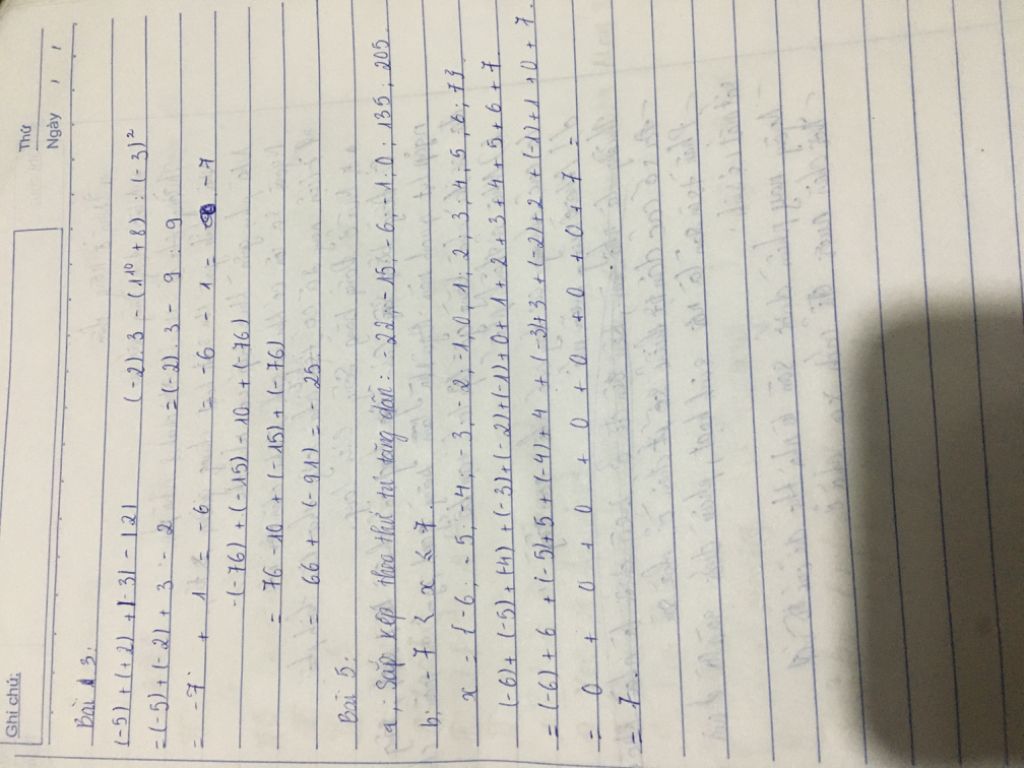 Ghi chú:
Thứ
Ngày / /
Bài 3:
(-5) + (+2) + |-3| - |2|
(-2) . 3 - (1¹⁰ + 8) : (-3)²
= (-5) + (-2) + 3 - 2
= (-2) . 3 - 9 : 9
= -7 + 1 = -6
= -6 - 1 = -7
-(-76) + (-15) - 10 + (-76)
= 76 - 10 + (-15) + (-76)
= 66 + (-91) = -25
Bài 5:
a, Sắp xếp theo thứ tự tăng dần: -22; -15; -6; -1; 0; 135; 205.
b, -7 < x ≤ 7
x = {-6; -5; -4; -3; -2; -1; 0; 1; 2; 3; 4; 5; 6; 7}
(-6) + (-5) + (-4) + (-3) + (-2) + (-1) + 0 + 1 + 2 + 3 + 4 + 5 + 6 + 7
= (-6) + 6 + (-5) + 5 + (-4) + 4 + (-3) + 3 + (-2) + 2 + (-1) + 1 + 0 + 7.
= 0 + 0 + 0 + 0 + 0 + 0 + 0 + 7 =
= 7.